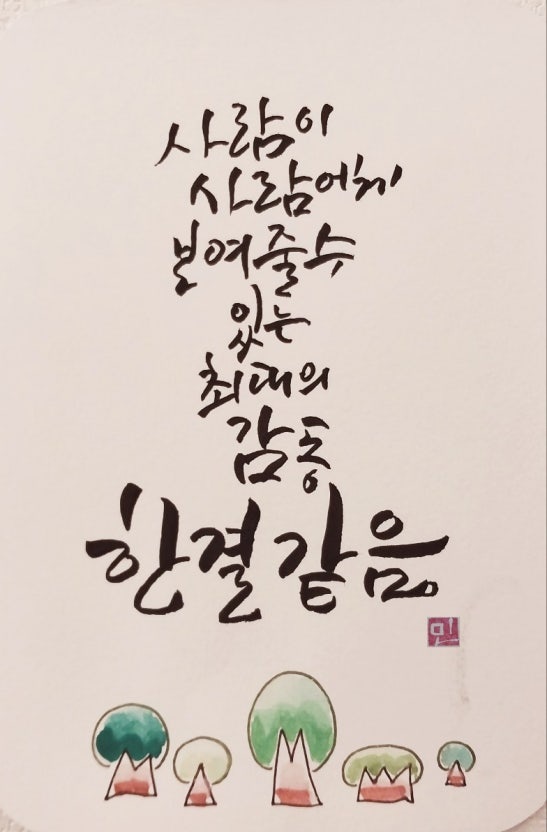 사람이
사람에게
보여줄수
있는
최대의
감동
한결같음.
민